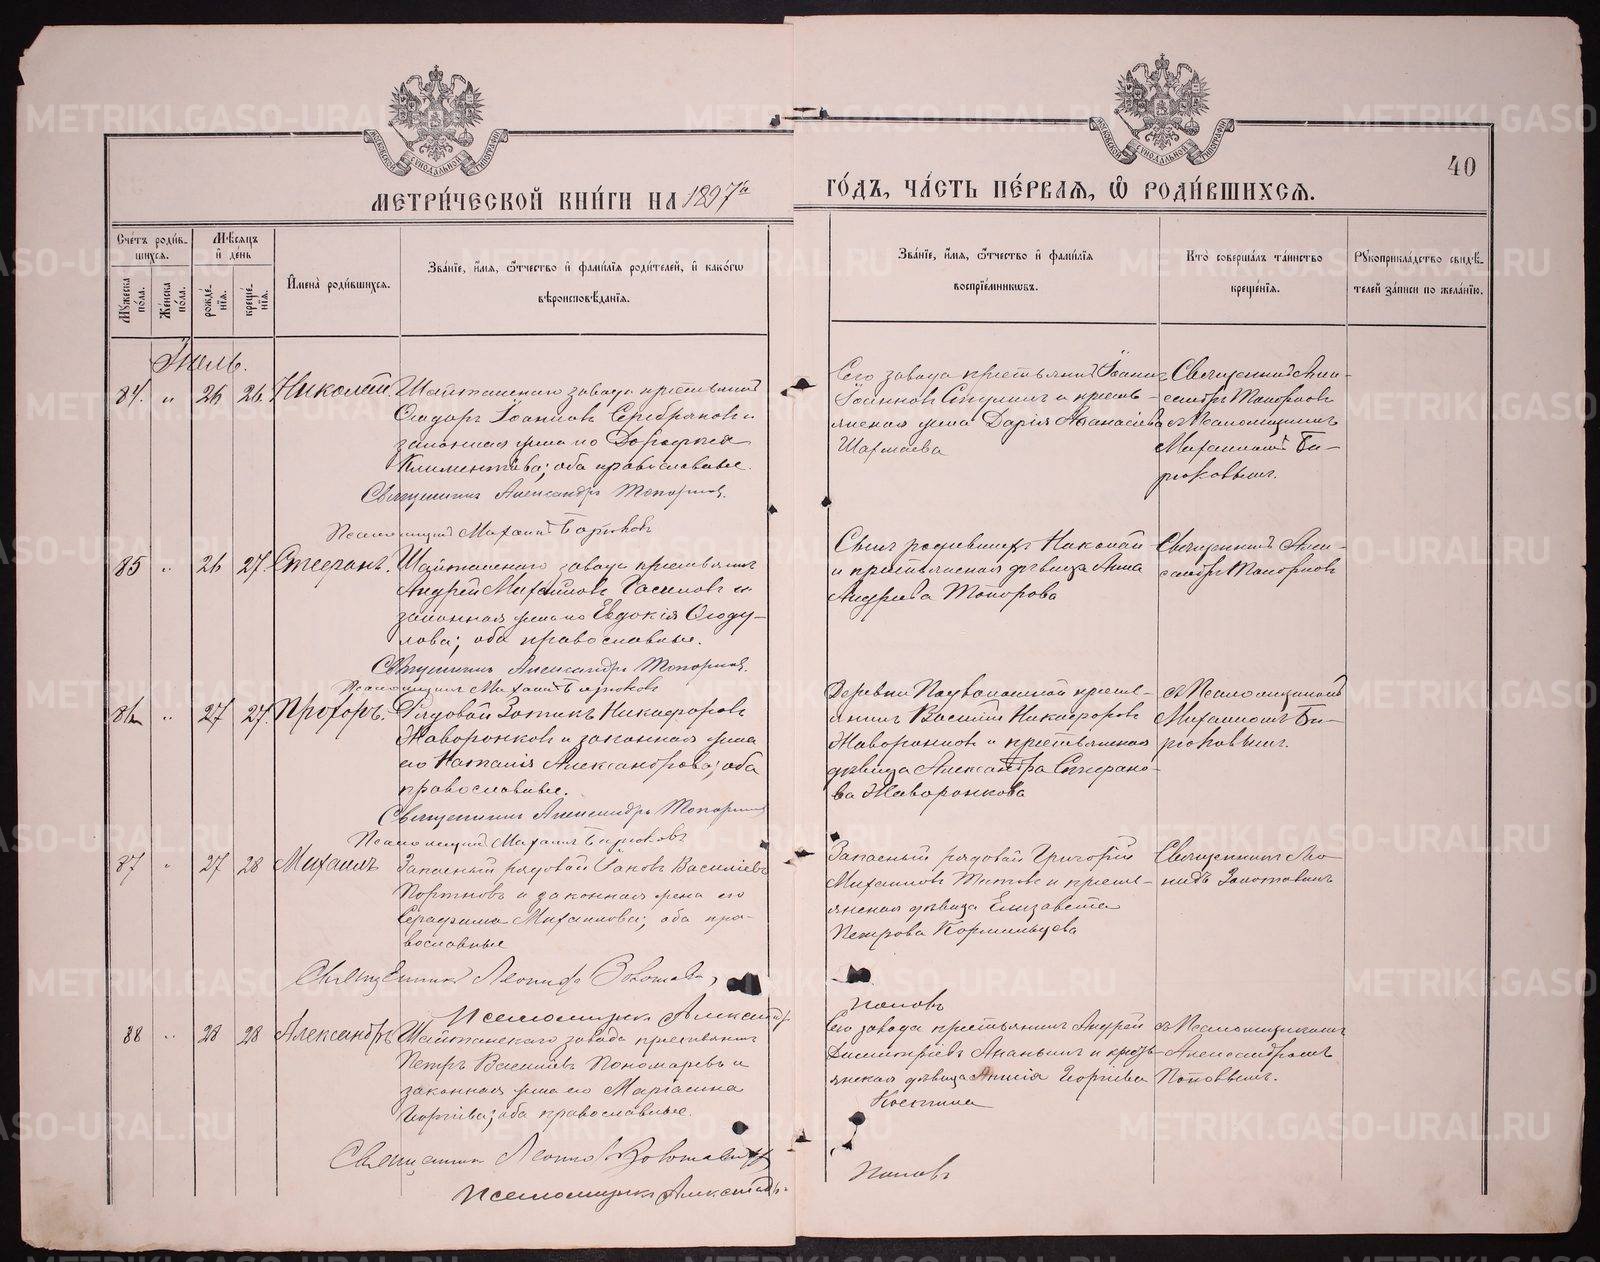 МЕТРИ́ЧЕСКОЙ КНИ́ГИ НА 1897й ГО́ДЪ, ЧА́СТЬ ПЕ́РВАЯ, Ѽ РОДИ́ВШИХСЯ.
40
Сче́тъ роди́вшихся.
Му́жеска по́ла.
Же́нска по́ла.
Мѣ́сяцъ и҆ де́нь
рожде́нїя.
креще́нїя.
И҆мена̀ роди́вшихся.
Зва́нїе, и҆́мя, ѻ҆́тчество и҆ фами́лїя роди́телей, и҆ како́гѡ
вѣроисповѣ́данїя.
Зва́нїе, и҆́мя, ѻ҆́тчество и҆ фами́лїя
воспрїе́мниковъ.
Кто̀ соверша́лъ та́инство
креще́нїя.
Рꙋкоприкла́дство свидѣ́-
телей за́писи по жела́нїю.
Іюль.
84. " 26 26. Николай. Шайтанскаго завода крестьянинъ
Ѳеодоръ Іоанновъ Серебряковъ и
законная жена его Дорофея
Климентьева; оба православные.
Священникъ Александръ Топорковъ.
Псаломщикъ Михаилъ Бирюковъ
Сего завода крестьянинъ Іоаннъ
Іоанновъ и кресть-
янская жена Дарія Аѳанасіева
Священникъ Алек-
сандръ Топорковъ
съ Псаломщикомъ
Михаиломъ Би-
рюковымъ.
85 " 26 27 Стефанъ. Шайтанскаго завода крестьянинъ
Андрей Михайловъ и
законная жена его Евдокія Ѳеоду-
лова; оба православные.
Священникъ Александръ Топорковъ.
Псаломщикъ Михаилъ Бирюковъ
Сынъ родившихъ Николай
и крестьянская дѣвица Анна
Андреева Топорова
Священникъ Алек-
сандръ Топорковъ
86 " 27 27 Прохоръ. Рядовой Зотикъ Никифоровъ
Жаворонковъ и законная жена
его Наталія Александрова; оба
православные.
Священникъ Александръ Топорковъ
Псаломщикъ Михаилъ Бирюковъ
Деревни кресть-
янинъ Василій Никифоровъ
Жаворонковъ и крестьянская
дѣвица Александра Стефано-
ва Жаворонкова
съ Псаломщикомъ
Михаиломъ Би-
рюковымъ.
87 " 27 28 Михаилъ Запасный рядовой Іаковъ Василіевъ
Портновъ и законная жена его
Серафима Михаилова; оба пра-
вославные
Священникъ Леонидъ Золотавинъ
Псаломщикъ Александръ Поповъ
Запасный рядовой Григорій
Михаиловъ Титовъ и кресть-
янская дѣвица Елизавета
Петрова Кормильцева
Священникъ Лео-
нидъ Золотавинъ
88 " 28 28 Александръ Шайтанскаго завода крестьянинъ
Петръ Василіевъ Пономаревъ и
законная жена его Маріамна
Георгіева; оба православные.
Священникъ Леонидъ Золотавинъ
Псаломщикъ Александръ Поповъ
Сего завода крестьянинъ Андрей
Димитріевъ Ананьинъ и кресть-
янская дѣвица Анисія Георгіева
Костина
съ Псаломщикомъ
Александромъ
Поповымъ.
METRIKI.GASO-URAL.RU